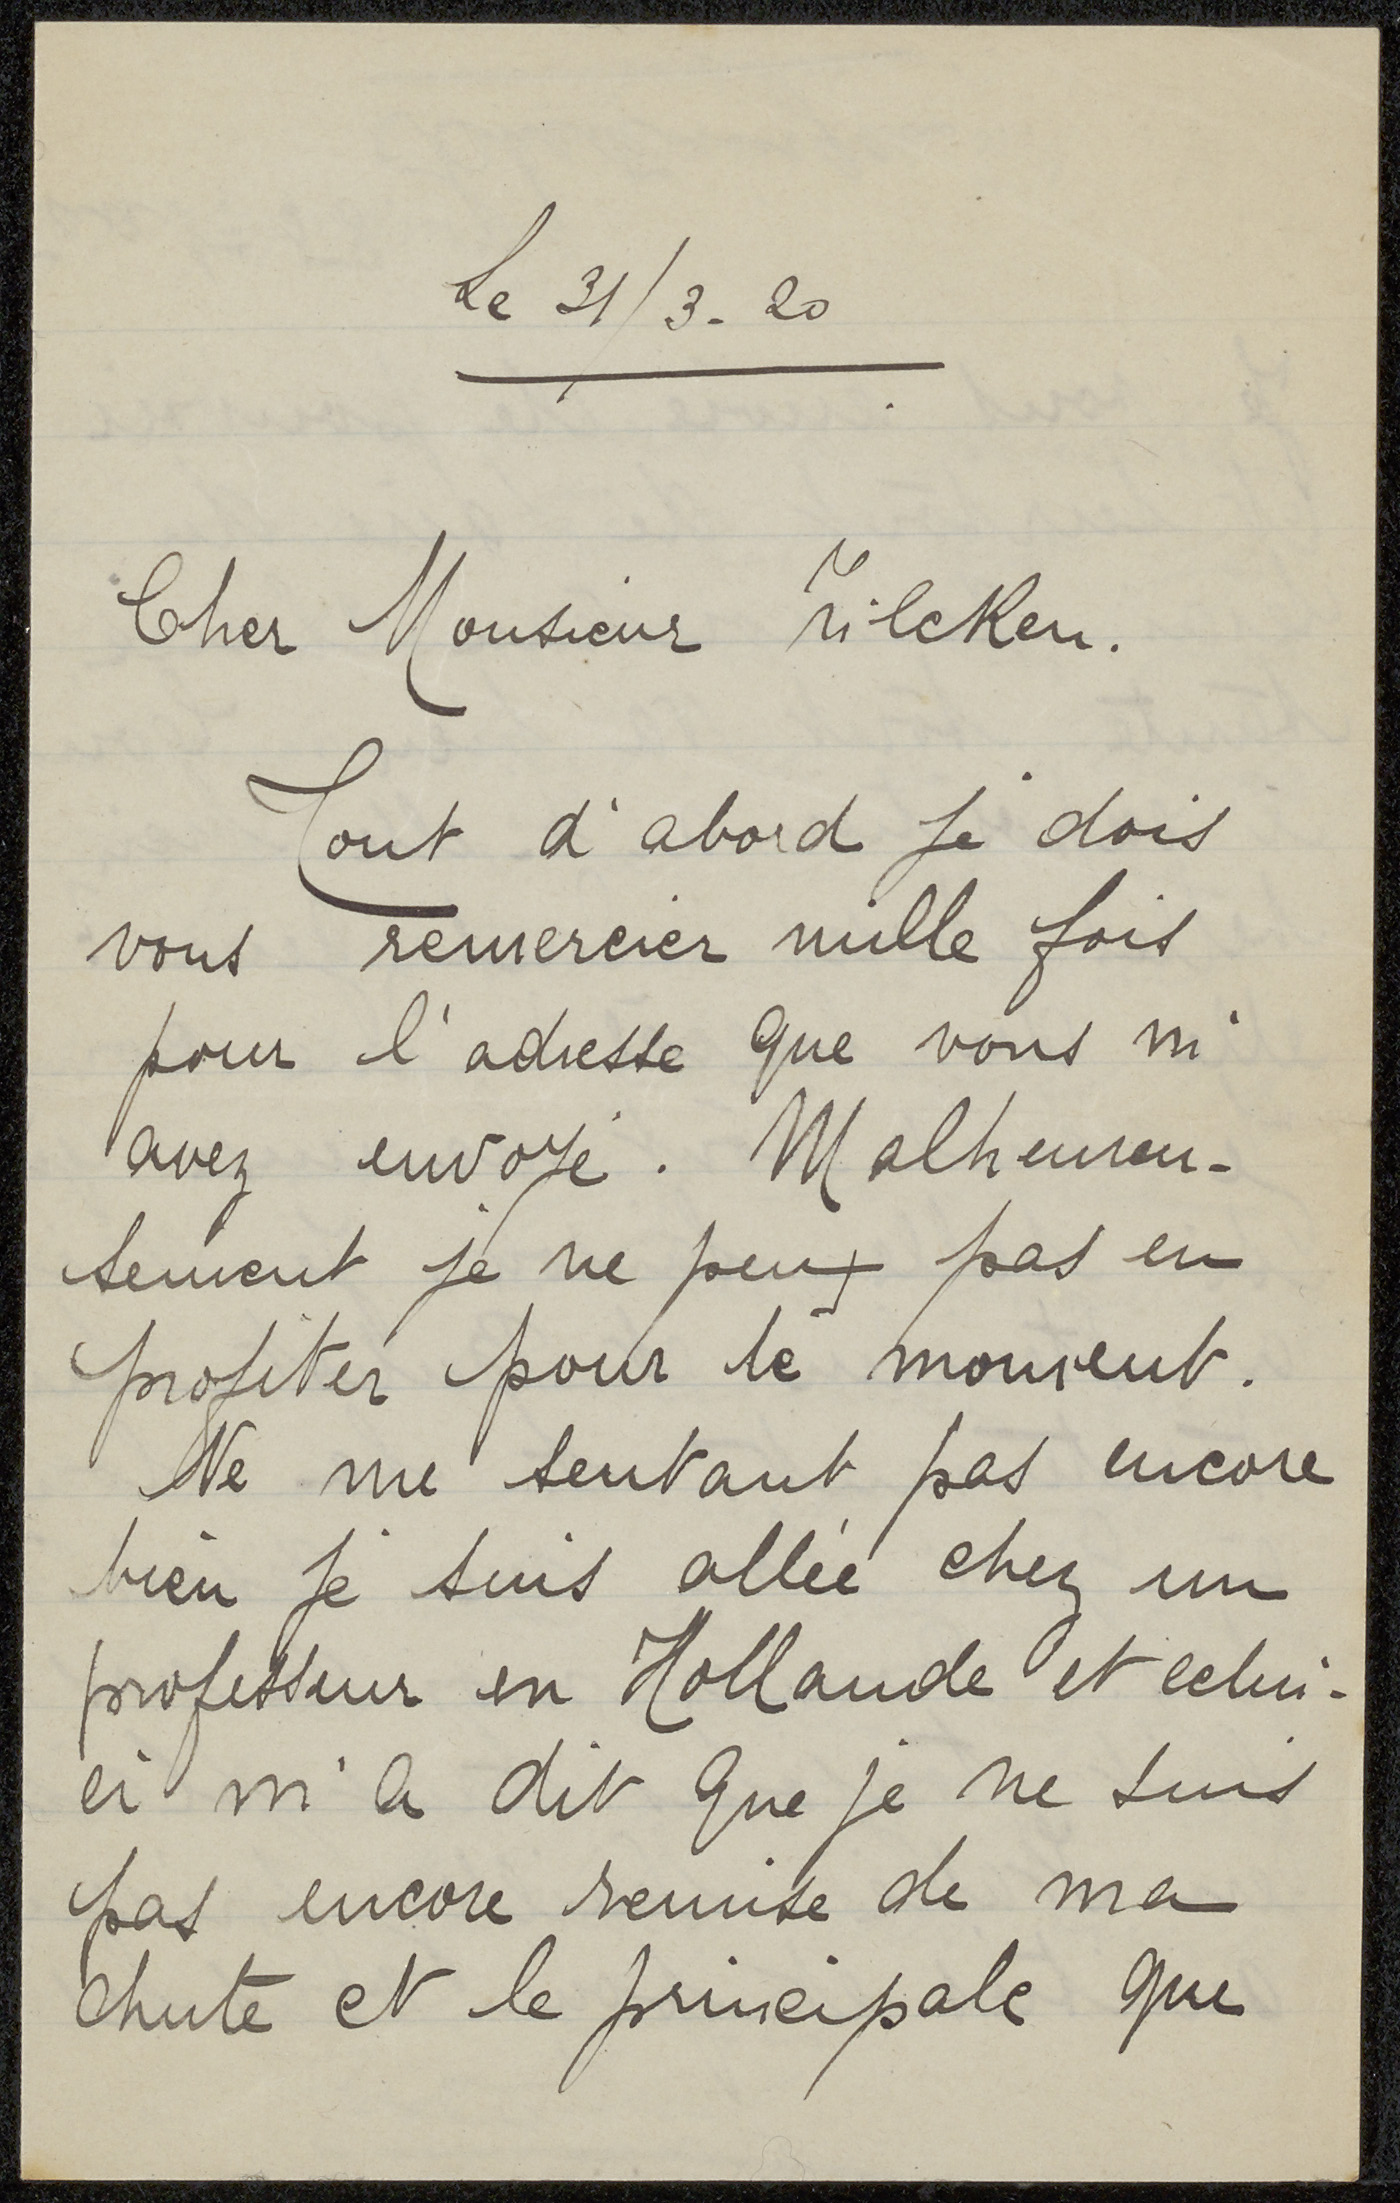 Le 31/3-20
Cher Monsieur Zilcken.
Tout d'abord je dois
vous remercier mille fois
pour l'adresse que vous m'
avez envoyé. Malheureu-
sement je ne peux pas en
profiter pour le moment.
Ne me sentant pas encore
bien je suis allée chez un
professeur en Hollande et celui-
ci m'a dit que je ne suis
pas encore remise de ma
chute et le principale que